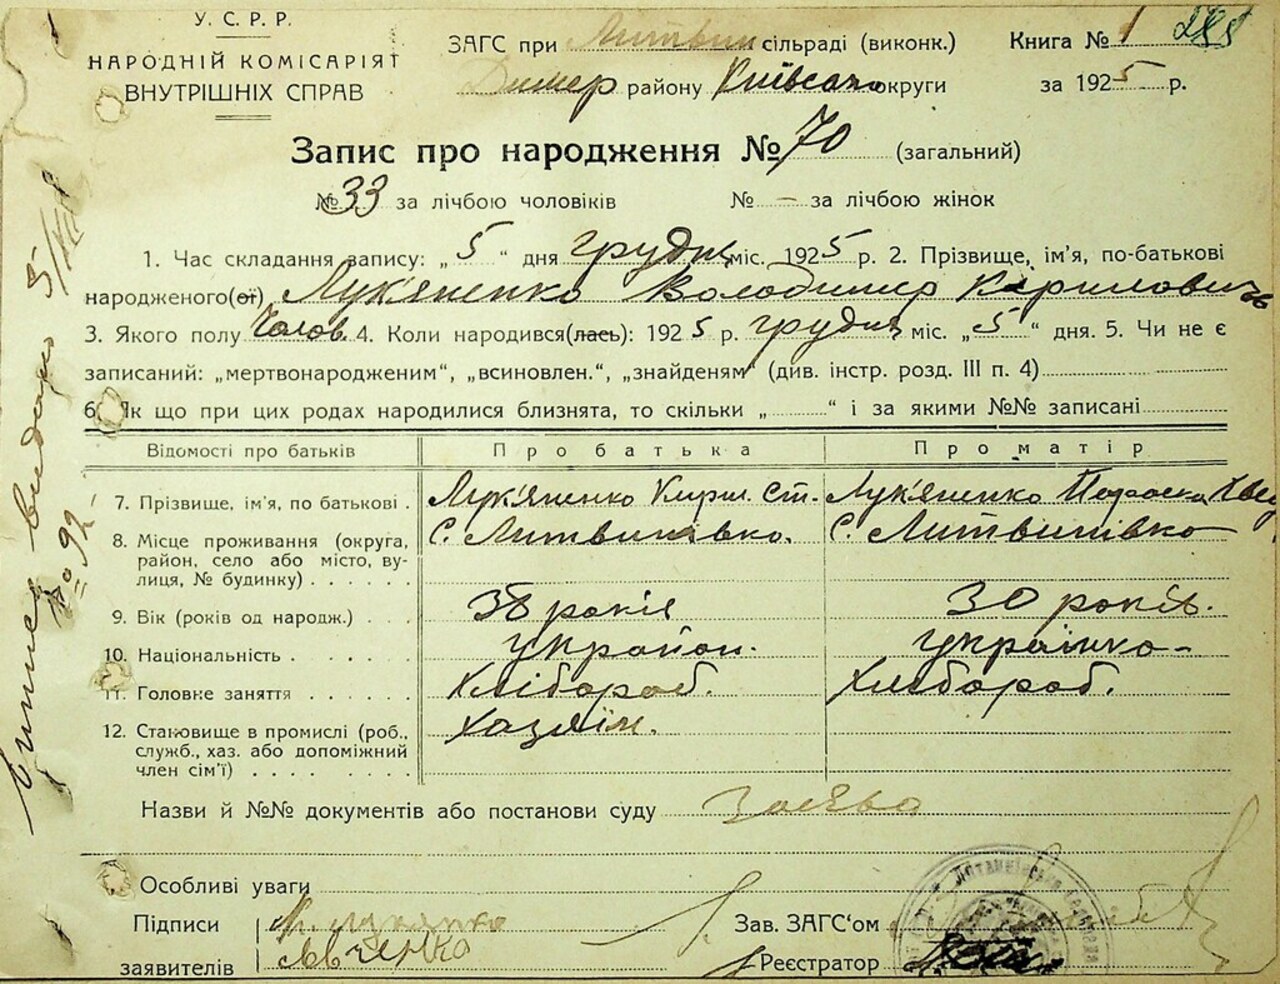 У. С. Р. Р.
НАРОДНІЙ КОМІСАРІЯТ
ВНУТРІШНІХ СПРАВ
ЗАГС при Литвин сільраді (виконк.) Книга № 1 288
Димер району Київсько округи за 1925 р.
Запис про народження № 70 (загальний)
№ 33 за лічбою чоловіків № – за лічбою жінок
1. Час складання запису: „ 5 “ дня грудня міс. 1925 р. 2. Прізвище, ім'я, по-батькові
народженого(ої) Лук'яненко Володимир Кирилович
3. Якого полу Чолов. 4. Коли народився(лась): 1925 р. грудня міс. „ 5 “ дня. 5. Чи не є
записаний: „мертвонародженим“, „всиновлен.“, „знайденям“ (див. інстр. розд. III п. 4)
6. Як що при цих родах народилися близнята, то скільки „ “ і за якими №№ записані
Відомості про батьків Про батька Про матір
7. Прізвище, ім'я, по батькові . Лук'яненко Кирил. Ст. Лук'яненко Параска
8. Місце проживання (округа, С. Литвинівко. С. Литвинівко
район, село або місто, ву-
лиця, № будинку) . . . . . .
9. Вік (років од народж.) . . . 38 років 30 років.
10. Національність . . . . . україн. українко-
11. Головне заняття . . . . . . Хлібороб. Хлібороб.
12. Становище в промислі (роб., хазяїн.
служб., хаз. або допоміжний
член сім'ї) . . . . . . . .
Назви й №№ документів або постанови суду Заява
Особливі уваги
Підписи
заявителів
Левченко
Зав. ЗАГС'ом
Реєстратор
Випис видано 5/XII
№ 92